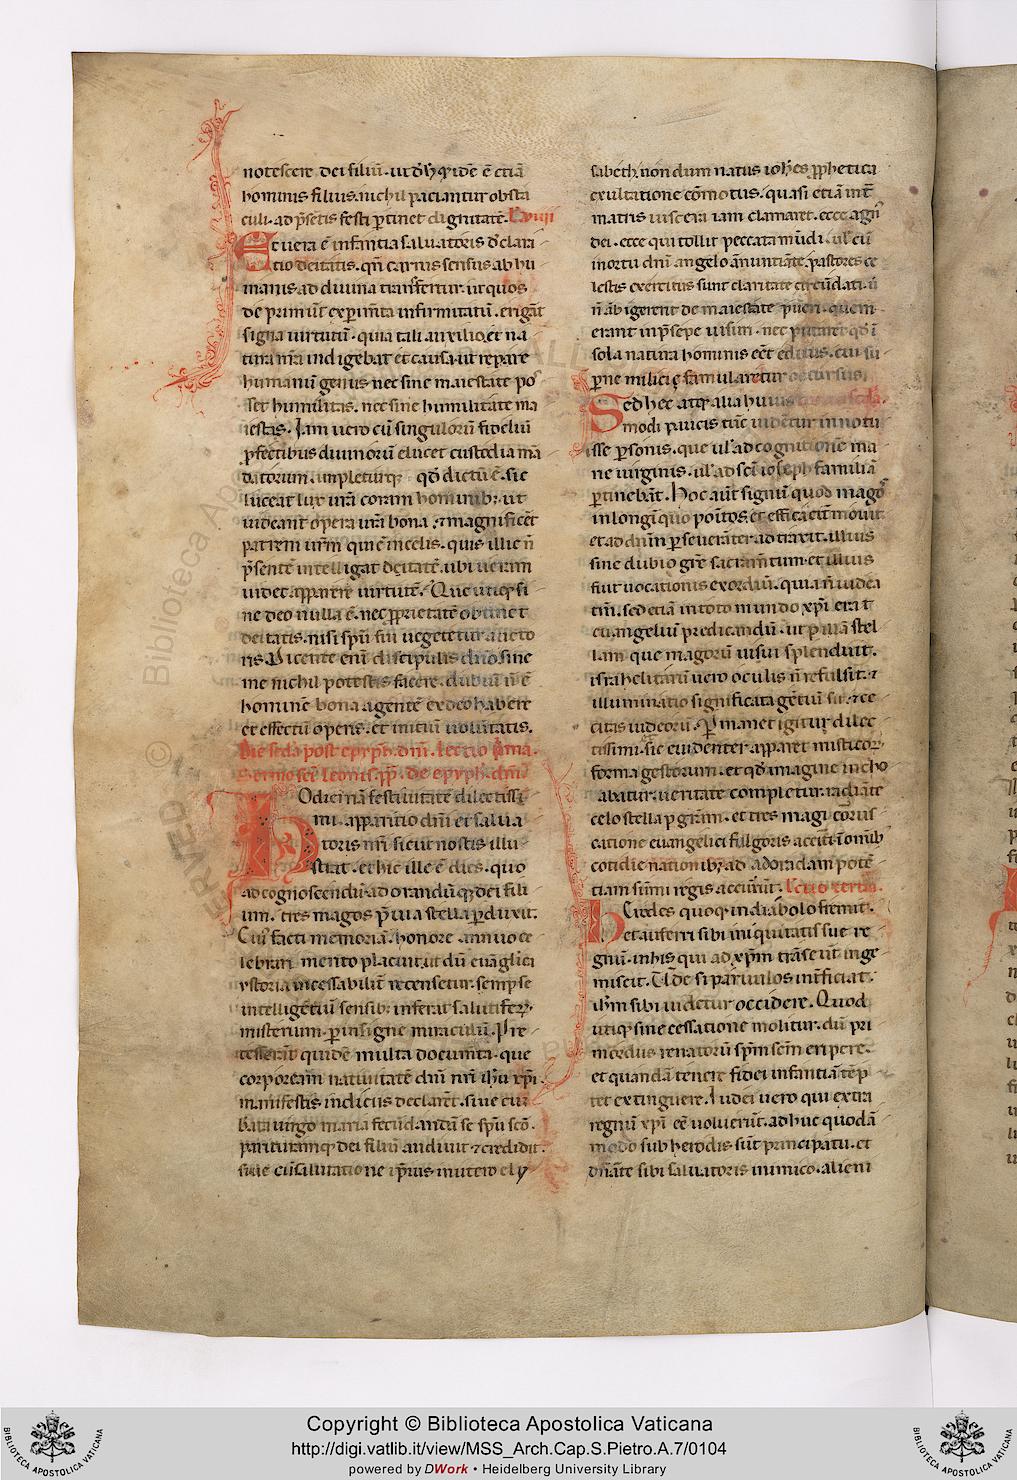 notescere dei filiũ. ut
hominis filius. nichil paciantur obsta
culi. ad p̃sens festi ꝑtinet dignitatẽ.
Et uera ẽ infantia saluatoris declara
tio deitatis. qñ carnis sensus ab hu
manis ad diuina transfertur. ut quos
de primũt experim̃ta infirmitatũ. erigãt
signa uirtutũ. quia tali auxilio. et na
tura nr̃a indigebat et causa. ut repare
humanũ genus nec sine maiestate pos
set humilitas. nec sine humilitate ma
iestas. Iam uero cũ singulorũ fidelium
ꝓfectibus diuinorũ elucet custodia mã
datorum. impleturqꝫ qd̃ dictũ ẽ. sic
luceat lux ur̃a coram hominibꝫ. ut
uideant opera ur̃a bona. ⁊ magnificẽt
patrem ur̃m qui ẽ in celis. quis illic ñ
p̃sentẽ intelligat deitatẽ. ubi ueram
uidet apparere uirtutẽ. Que utiqꝫ si
ne deo nulla ẽ. nec ꝓprietatẽ obtinet
deitatis. nisi sp̃u sui uegetetur aucto
ris. Dicente enĩ discipulis dño. sine
me nichil potestis facere. dubiũ ñ ẽ
hominẽ bona agentẽ ex deo habere
et effectũ operis. et initiũ uoluntatis.
Die sc̃da post epyph. dñi. lectio p̃ma.
Sermo sc̃i leonis. pp̃. de epyph. dñi
Hodiernã festiuitatẽ dilectissi
mi. apparitio dñi et salua
toris nr̃i sicut nostis illu
strat. et hic ille ẽ dies. quo
ad cognoscendũ. adorandũ qꝫ dei fili
um. tres magos p̃uia stella ꝑduxit.
Cui᾽ facti memoriã. honore annuo ce
lebrari merito placuit. ut dũ euãglica
ystoria incessabiliter recensetur. semp se
intelligẽtiũ sensibꝫ inferat salutiferꝝ
misterium. ꝑ insigne miraculũ. Pre
cesserũt quidẽ multa documta. que
corpoream natiuitatẽ dñi nr̃i ihũ xp̃i.
manifestis indiciis declarẽt. siue cũ
bata uirgo maria fecũdandã se sp̃u sc̃o.
parituramqꝫ dei filiũ audiuit ⁊ credidit.
siue cũ salutatione ip̃ius in utero ely
sabeth. non dum natus ioh̃es ꝓphetica
exultatione cõmotus. quasi etiã int̃
matris uiscera iam clamaret. ecce agñ
dei. ecce qui tollit peccata mũdi. ul᾽ cũ
in ortu dñi angelo ãnuntiãte. pastores ce
lestis exercitus sunt claritate circũdati. ũ
ñ ãbigerent de maiestate pueri. quem
erant in p̃sepe uisuri. nec putarẽt qd̃ ĩ
sola natura hominis eẽt editus. cui su
ꝑne milicię famularetur occursus.
Sed hec atqꝫ alia huius
modi paucis tũc uidẽtur innotu
isse ꝑsonis. que ul᾽ ad cognitionẽ ma
rie uirginis. ul᾽ ad sc̃i ioseph familiã
ꝑtinebãt. Hoc aũt signũ quod magos
in longĩquo poĩtos et efficacit̃ mouit
et ad dñm ꝑseuerãter adtraxit. illius
sine dubio gr̃e sacram̃tum. et illius
fuit uocationis exordiũ. quia ñ in iudea
tm̃. sed etiã in toto mundo xp̃i erat
euangeliũ predicandũ. ut ꝑ illã stel
lam que magorũ uisui splenduit.
israhelitarũ uero oculis ñ refulsit. ⁊
illuminatio significata gẽtiũ sit. ⁊ ce
citas iudeorũ. Permanet igitur dilec
tissimi. sic euidenter apparet misticoꝝ
forma gestorum. et qd̃ imagine incho
abatur. ueritate completur. radiãte
celo stella p gr̃am. et tres magi corus
catione euangelici fulgoris acciti ĩ om̃ibꝫ
cotidie nationibꝫ ad adoradam potẽ
tiam sũmi regis accurrũt. lectio tertia.
Herodes quoqꝫ in diabolo fremit.
et auferri sibi iniquitatis sue re
gnũ. in his qui ad xp̃m trãseũt inge
miscit. Unde si paruulos interficiat.
ihm̃ sibi uidetur occidere. Quod
utiqꝫ sine cessatione molitur. dũ pri
mordiis renatorũ sp̃m sc̃m eripere.
et quandã tenere fidei infantiã tẽp
tet extinguere. Iudei uero qui extra
regnũ xp̃i eẽ uoluerũt. adhuc quodã
modo sub herodis sũt principatu. et
dñãte sibi saluatoris inimico. alieni
Copyright © Biblioteca Apostolica Vaticana
http://digi.vatlib.it/view/MSS_Arch.Cap.S.Pietro.A.7/0104
powered by DWork • Heidelberg University Library
BIBLIOTECA APOSTOLICA VATICANA
BIBLIOTECA APOSTOLICA VATICANA